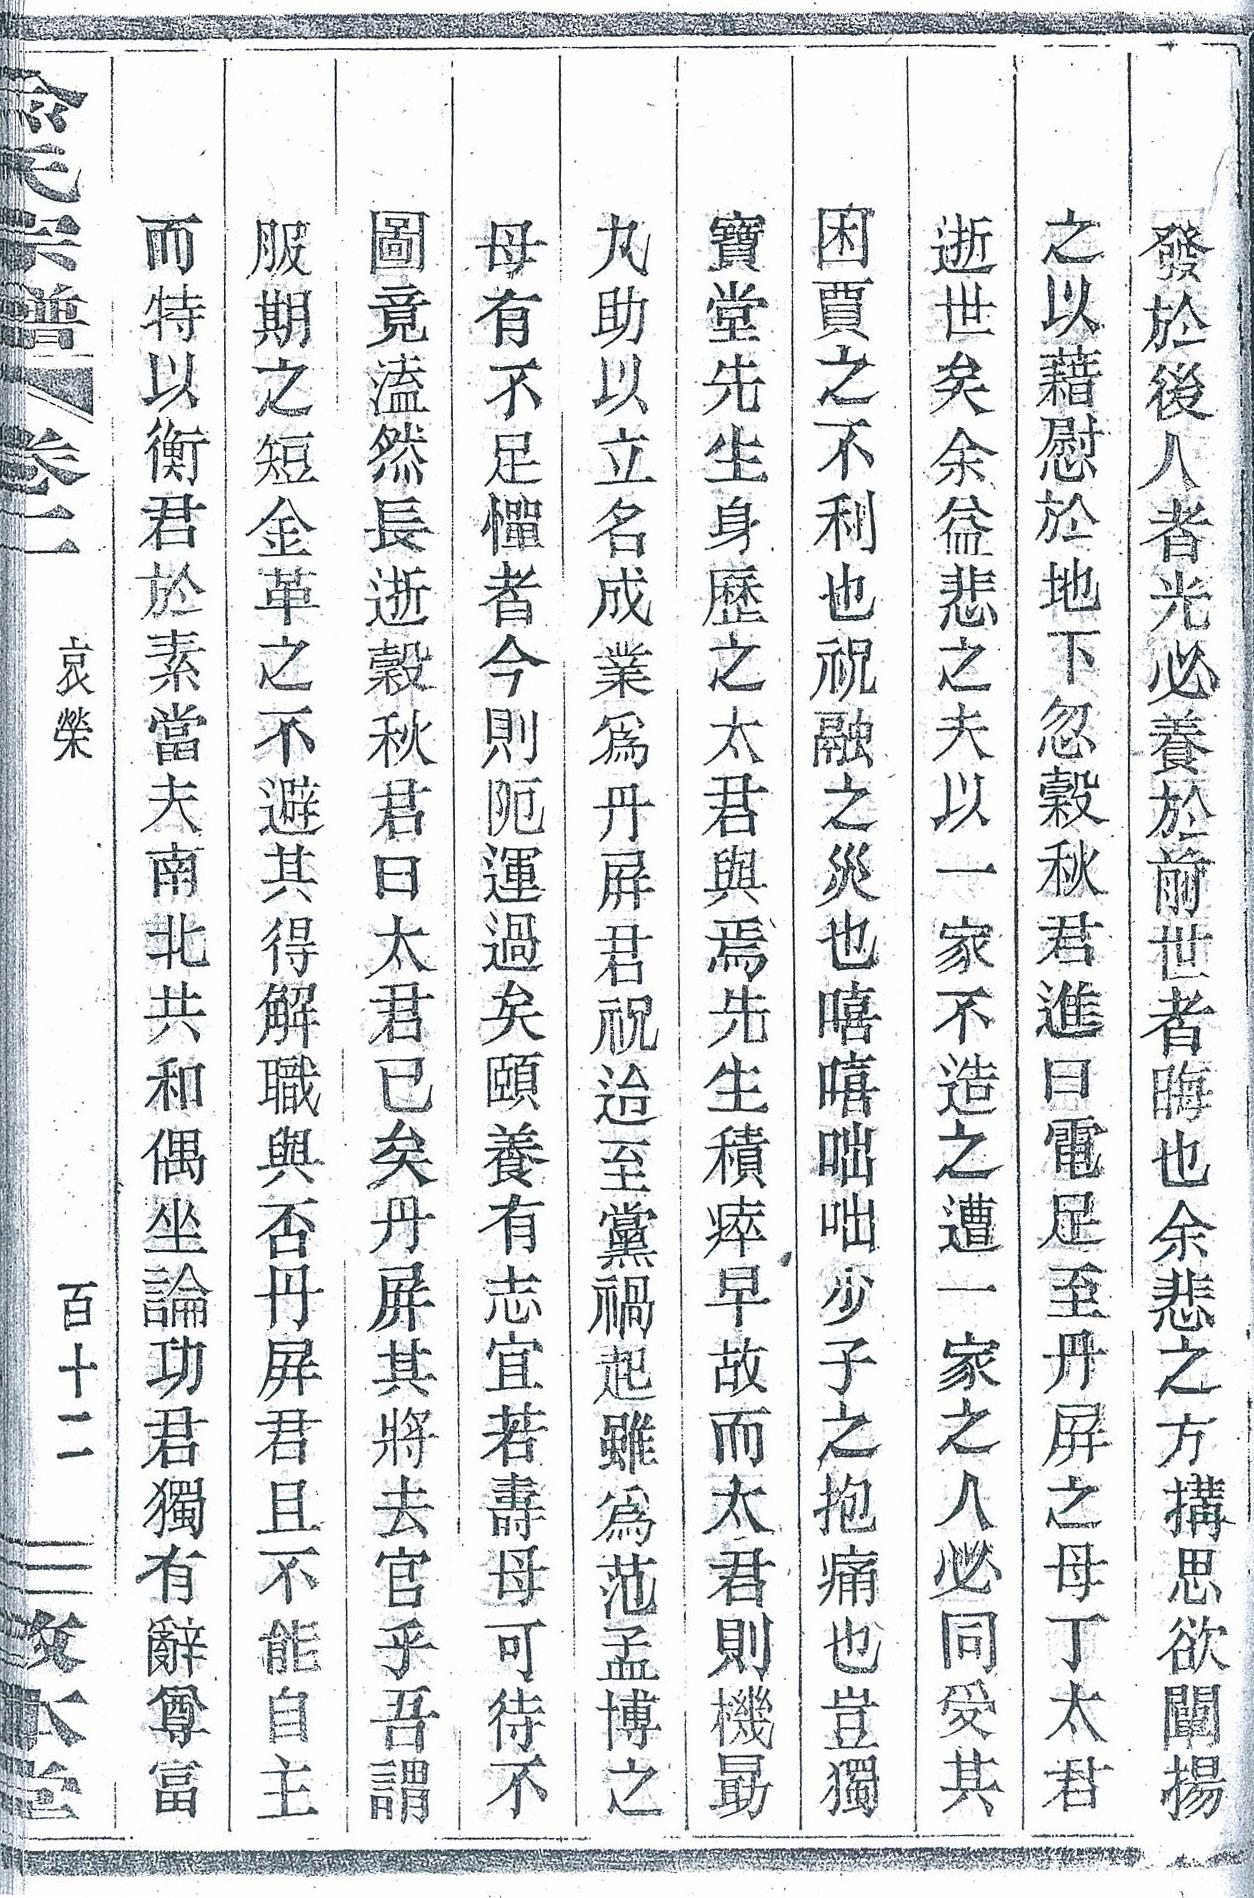 發於後人者光必養於前世者晦也余悲之方搆思欲闡揚
之以藉慰於地下忽穀秋君進曰電足至丹屏之母丁太君
逝世矣余益悲之夫以一家不造之遭一家之人必同受其
困賈之不利也祝融之災也嘻嘻咄咄少子之抱痛也豈獨
寶堂先生身歷之太君與焉先生積瘁早故而太君則機勗
丸助以立名成業爲丹屏君祝迨至黨禍起雖爲范孟博之
母有不足憚者今則阨運過矣頤養有志宜若壽母可待不
圖竟溘然長逝穀秋君曰太君已矣丹屏其將去官乎吾謂
服期之短金革之不避其得解職與否丹屏君且不能自主
而特以衡君於素當夫南北共和偶坐論功君獨有辭尊富
氏宗譜 卷二 哀榮 百十二 敦本堂